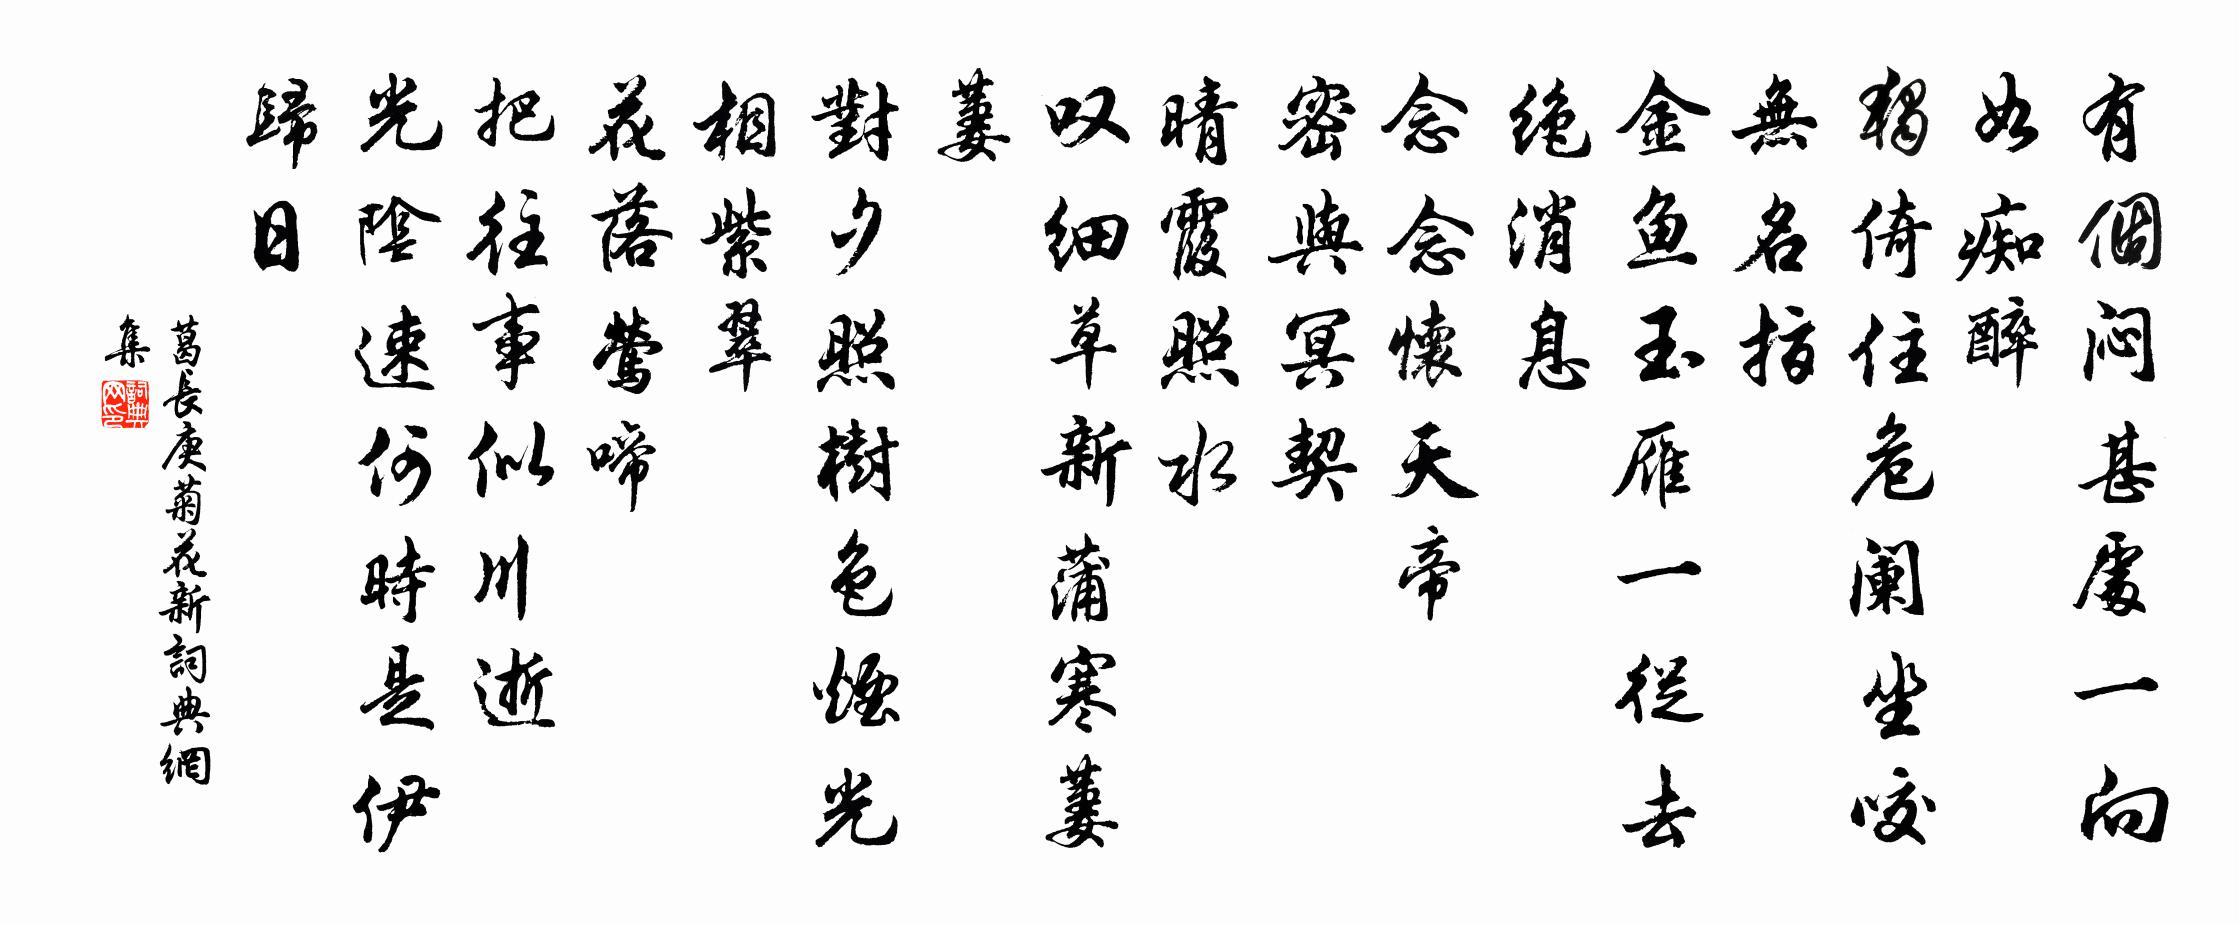 有個闷甚處一向
如痴醉
独倚住危阑坐咬
無名指
金鱼玉雁一從去
绝消息
念念懷天帝
密與冥契
晴霞照水
叹细草新蒲寒萋
萋
對夕照樹色煙光
相紫翠
花落鶯啼
把往事似川逝
光陰速何時是伊
歸日
葛長庚菊花新詞典網
集
詞典網印